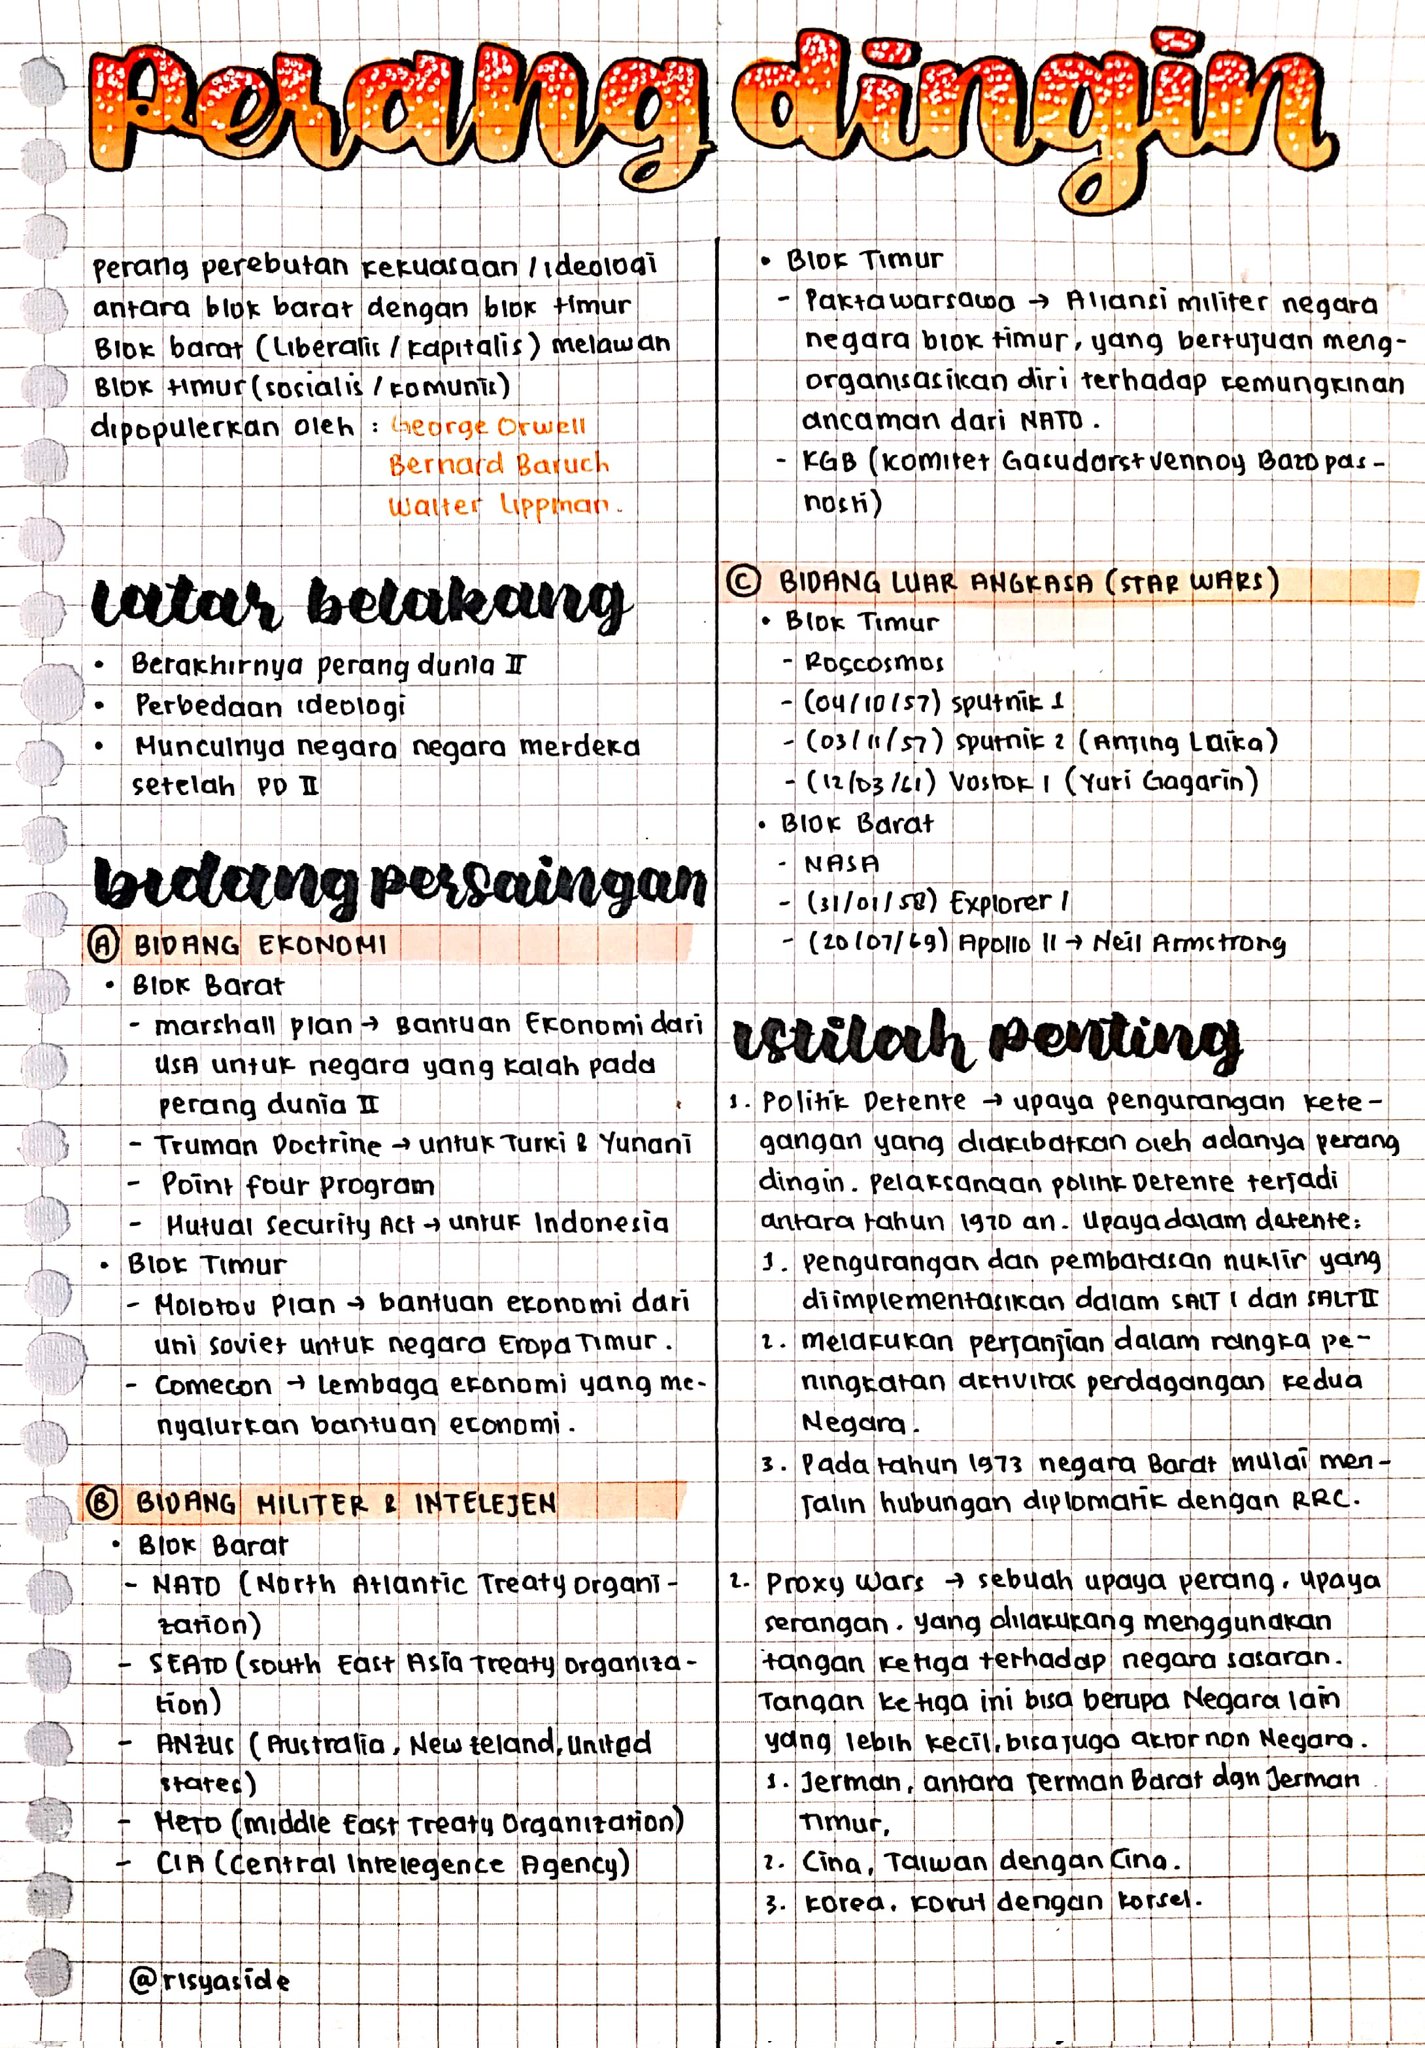 perang dingin
perang perebutan kekuasaan / ideologi
antara blok barat dengan blok timur
Blok barat (Liberalis / kapitalis) melawan
Blok timur (sosialis / komunis)
dipopulerkan oleh : George Orwell
Bernard Baruch
Walter Lippman.
latar belakang
• Berakhirnya perang dunia II
• Perbedaan ideologi
• Munculnya negara negara merdeka
setelah PD II
bidang persaingan
A BIDANG EKONOMI
• Blok Barat
- marshall plan → Bantuan Ekonomi dari
USA untuk negara yang kalah pada
perang dunia II
- Truman Doctrine → untuk Turki & Yunani
- Point four program
- Mutual Security Act → untuk Indonesia
• Blok Timur
- Molotov Plan → bantuan ekonomi dari
uni soviet untuk negara Eropa Timur.
- Comecon → Lembaga ekonomi yang me-
nyalurkan bantuan economi.
B BIDANG MILITER & INTELEJEN
• Blok Barat
- NATO (North Atlantic Treaty Organi-
zation)
- SEATO (South East Asia Treaty Organiza-
tion)
- ANZUS (Australia, New zeland, United
states)
- METO (middle East Treaty Organization)
- CIA (Central Intelegence Agency)
@risyaside
• Blok Timur
- Pakta warsawa → Aliansi militer negara
negara blok timur, yang bertujuan meng-
organisasikan diri terhadap kemungkinan
ancaman dari NATO.
- KGB (Komitet Gasudarstvennoy Bazopas-
nosti)
C BIDANG LUAR ANGKASA (STAR WARS)
• Blok Timur
- Roscosmos
- (04/10/57) sputnik 1
- (03/11/57) sputnik 2 (Anjing Laika)
- (12/03/61) Vostok 1 (Yuri Gagarin)
• Blok Barat
- NASA
- (31/01/58) Explorer 1
- (20/07/69) Apollo 11 → Neil Armstrong
istilah penting
1. Politik Detente → upaya pengurangan kete-
gangan yang diakibatkan oleh adanya perang
dingin. Pelaksanaan politik Detente terjadi
antara tahun 1970 an. Upaya dalam detente:
1. pengurangan dan pembatasan nuklir yang
diimplementasikan dalam SALT I dan SALT II
2. melakukan perjanjian dalam rangka pe-
ningkatan aktivitas perdagangan kedua
Negara.
3. Pada tahun 1973 negara Barat mulai men-
jalin hubungan diplomatik dengan RRC.
2. Proxy Wars → sebuah upaya perang, upaya
serangan. yang dilakukang menggunakan
tangan ketiga terhadap negara sasaran.
Tangan ketiga ini bisa berupa Negara lain
yang lebih kecil, bisa juga aktor non Negara.
1. Jerman, antara Jerman Barat dan Jerman
Timur,
2. Cina, Taiwan dengan Cina.
3. Korea. Korut dengan korsel.